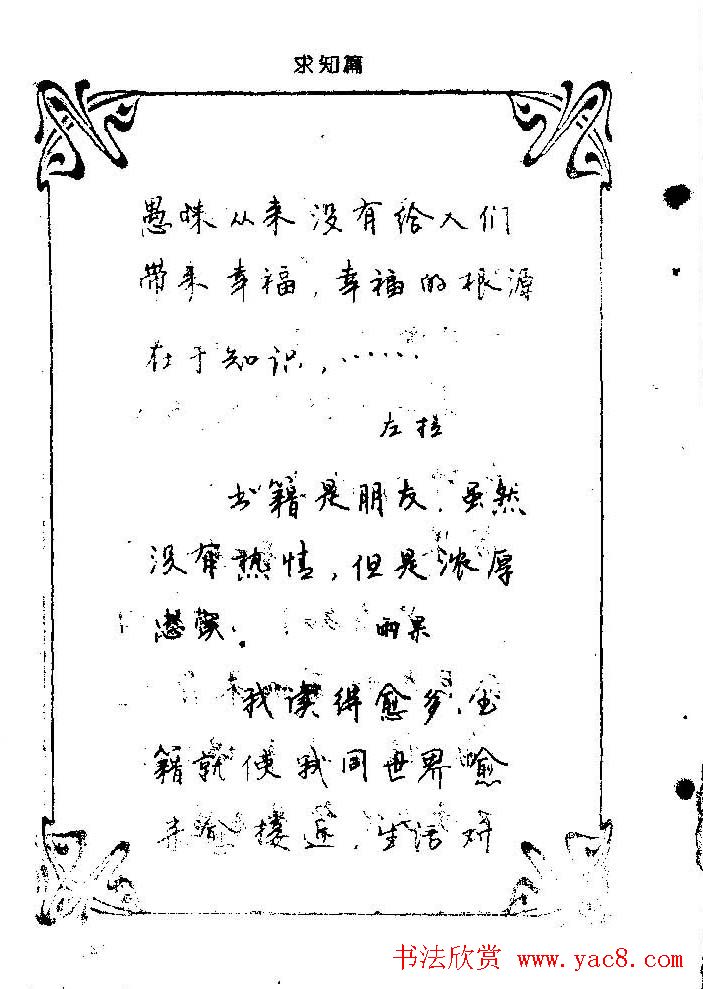 求知篇
愚昧从来没有给人们
带来幸福，幸福的根源
在于知识，……
左拉
书籍是朋友，虽然
没有热情，但是浓厚
雨果
我读得愈多，书
籍就使我同世界愈
来愈接近，生活对
书法欣赏 www.yac8.com